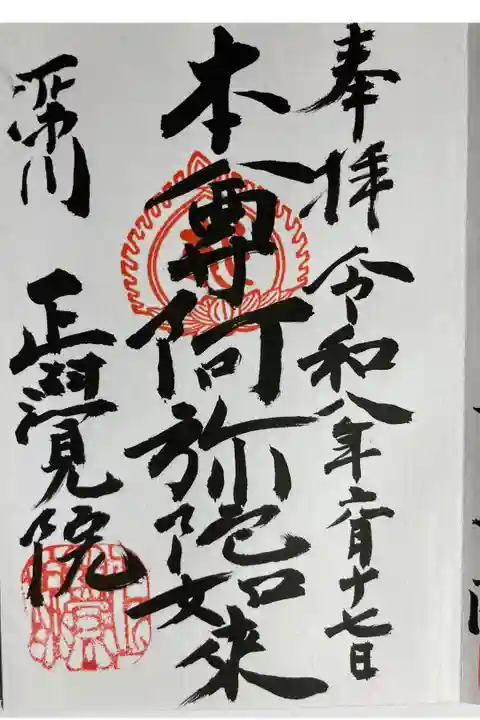 奉拝 令和八年六月十七日
本尊阿弥陀如来
深川 正覺院